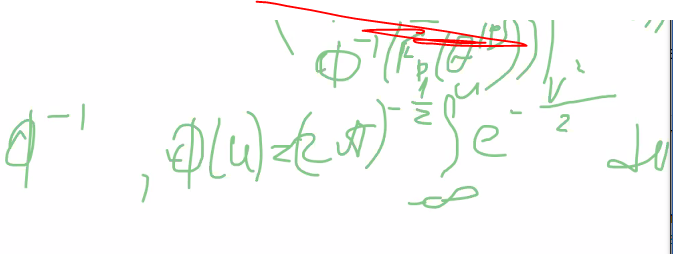 Φ^{-1}(F_p(θ^{(p)}))
Φ^{-1}, Φ(u)=(2π)^{-\frac{1}{2}} \int_{-∞}^{u} e^{-\frac{v^2}{2}} dv